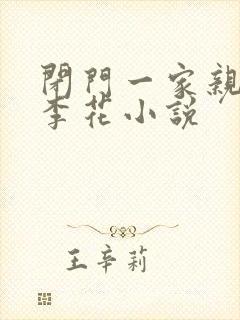 閉門一家親
李花小說
王辛莉